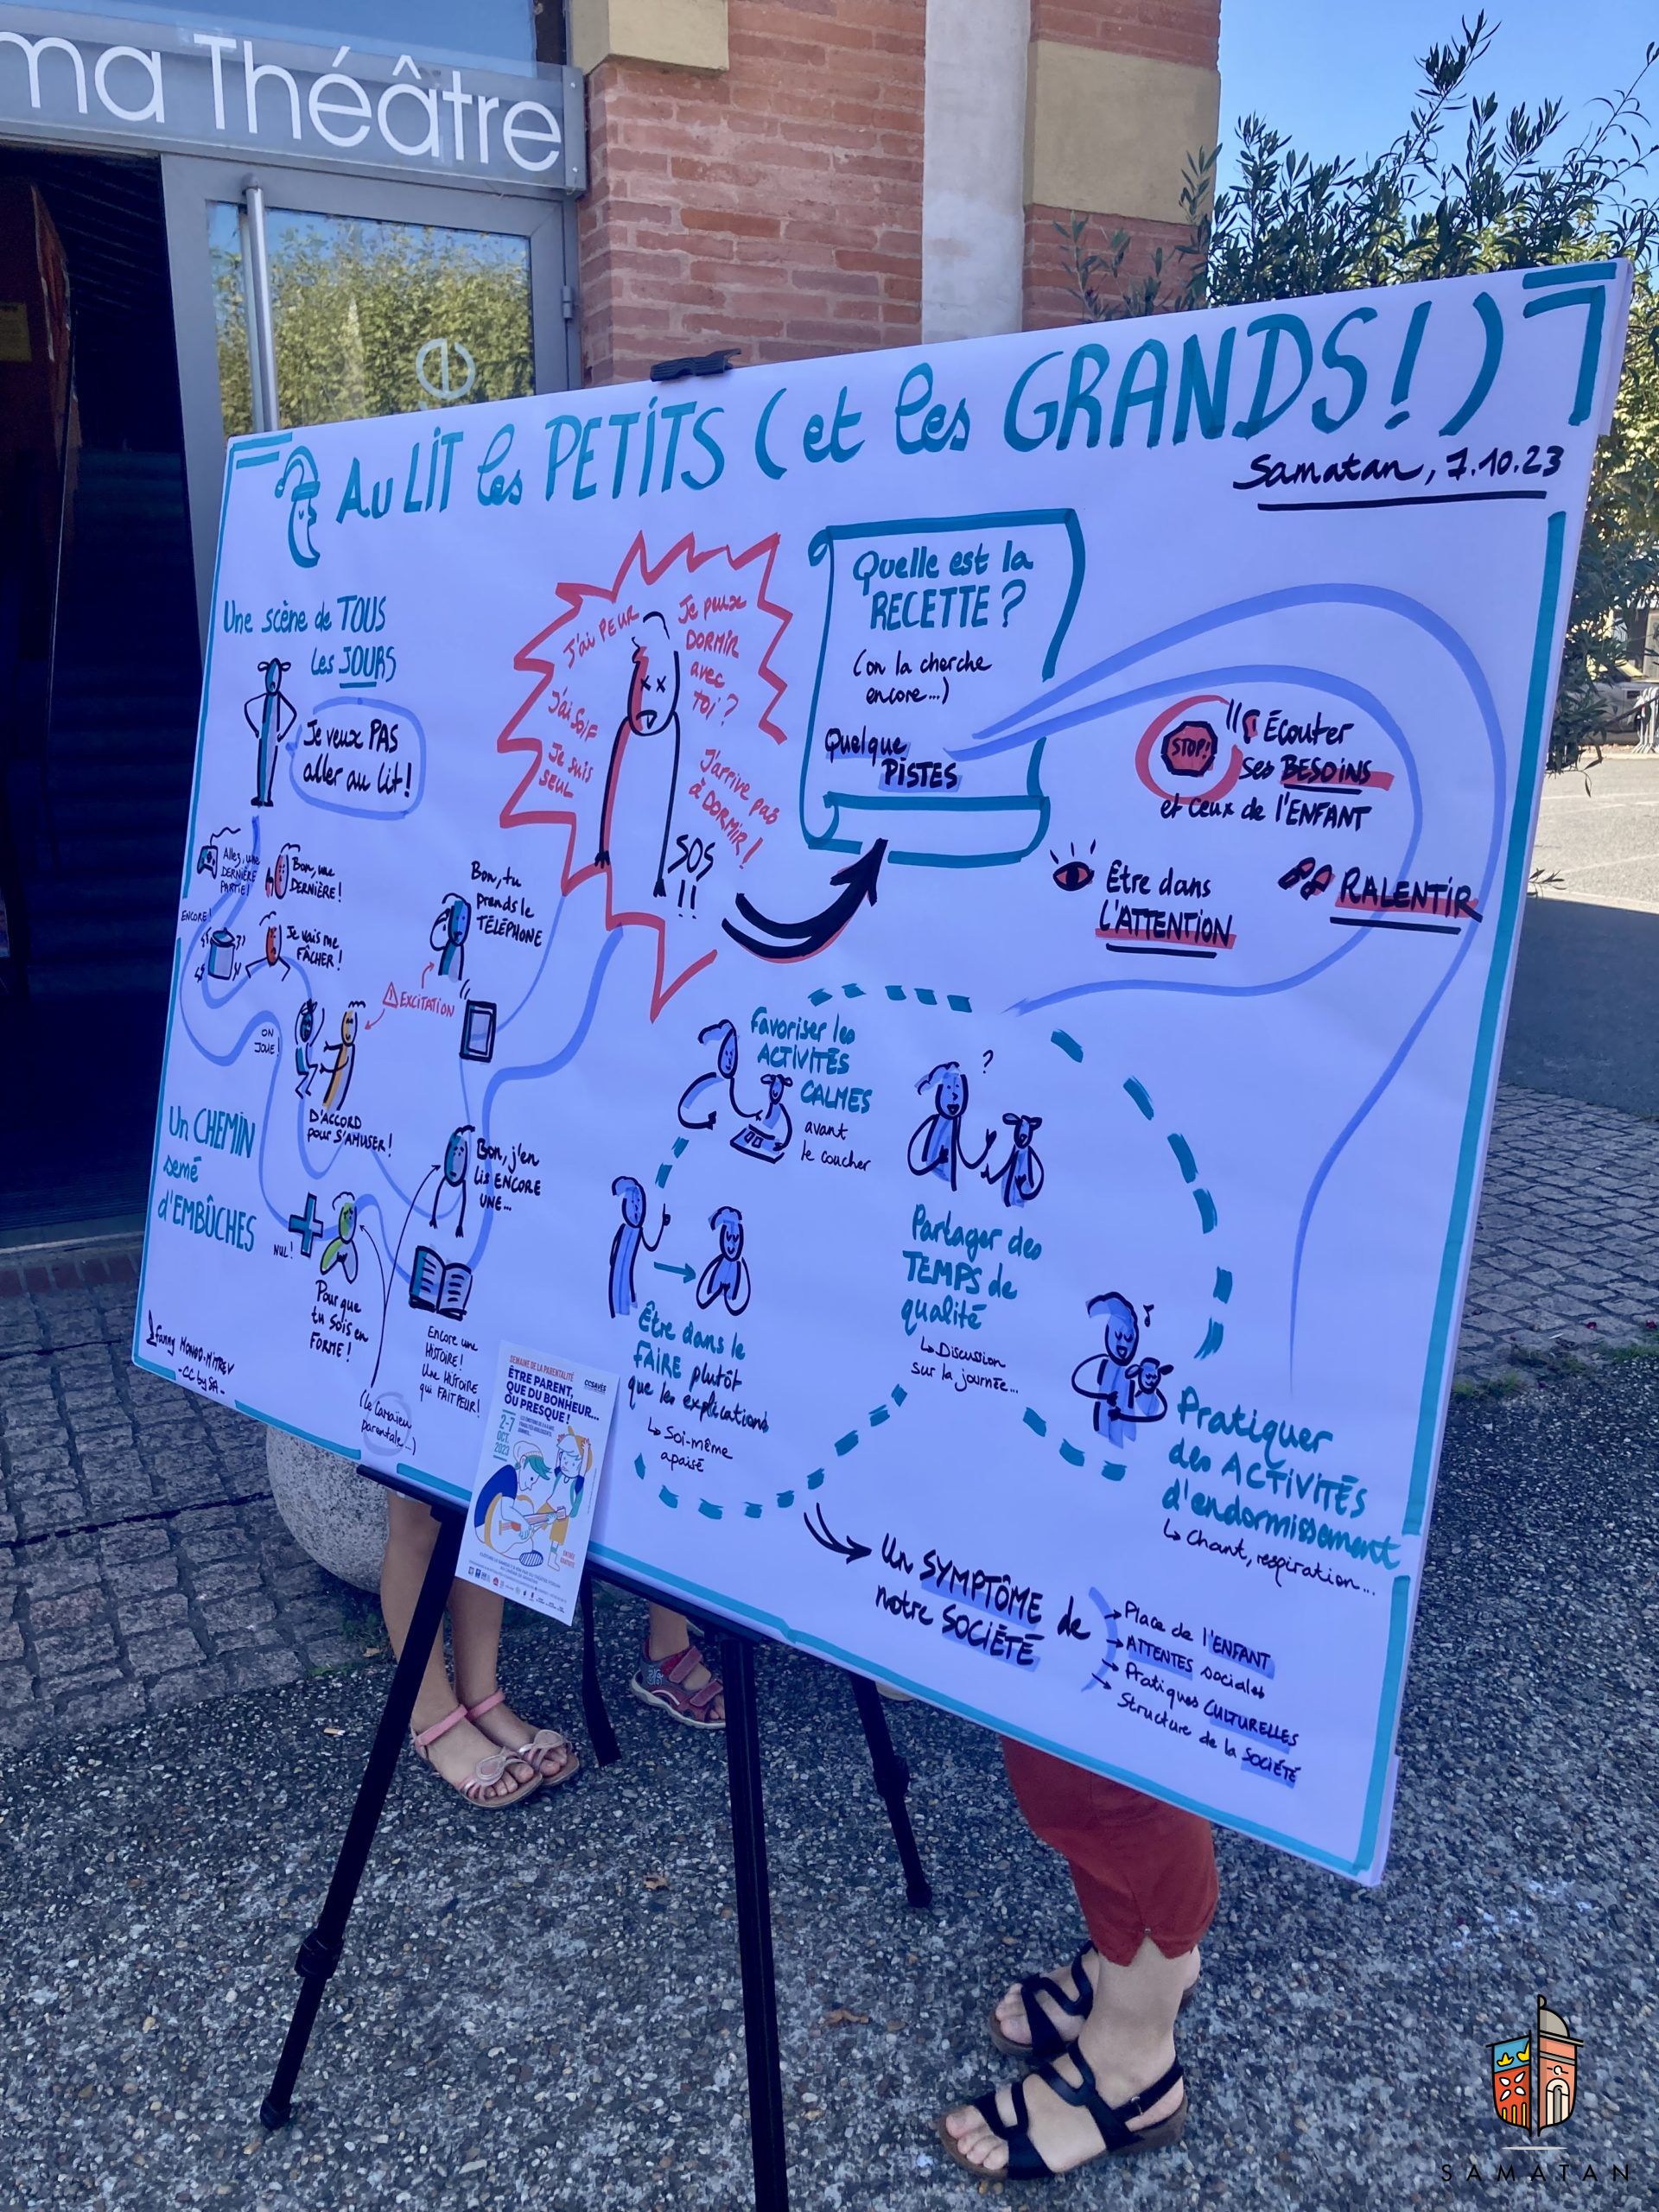 ma Théâtre
e
Au LIT les PETITS (et les GRANDS!)
Samatan, 7.10.23
Une scène de TOUS
les JOURS
Je veux PAS
aller au lit!
Allez, une
DERNIÈRE
PARTIE!
Bon, une
DERNIÈRE!
ENCORE!
Je vais me
FÂCHER!
Bon, tu
prends le
TÉLÉPHONE
EXCITATION
ON
JOUE!
D'ACCORD
pour S'AMUSER!
Un CHEMIN
semé
d'EMBÛCHES
NUL!
Pour que
tu sois en
FORME!
Bon, j'en
lis ENCORE
UNE...
Encore une
HISTOIRE!
Une HISTOIRE
qui FAIT PEUR!
(le Caméléon
parental...)
Fanny MONOD-MITREV
-CC by SA-
J'ai PEUR
Je peux
DORMIR
avec
toi?
J'ai SOIF
Je suis
SEUL
J'arrive pas
à DORMIR!
SOS
!!
Quelle est la
RECETTE?
(on la cherche
encore...)
Quelque
PISTES
STOP!
Écouter
ses BESOINS
et ceux de l'ENFANT
Être dans
L'ATTENTION
RALENTIR
Favoriser les
ACTIVITÉS
CALMES
avant
le coucher
?
Partager des
TEMPS de
qualité
↳ Discussion
sur la journée...
Être dans le
FAIRE plutôt
que les explications
↳ Soi-même
apaisé
Pratiquer
des ACTIVITÉS
d'endormissement
↳ Chant, respiration...
Un SYMPTÔME de
notre SOCIÉTÉ
→ Place de l'ENFANT
→ ATTENTES sociales
→ Pratiques CULTURELLES
→ Structure de la SOCIÉTÉ
SEMAINE DE LA PARENTALITÉ
ÊTRE PARENT,
QUE DU BONHEUR...
OU PRESQUE!
2-7
OCT.
2023
SAMATAN